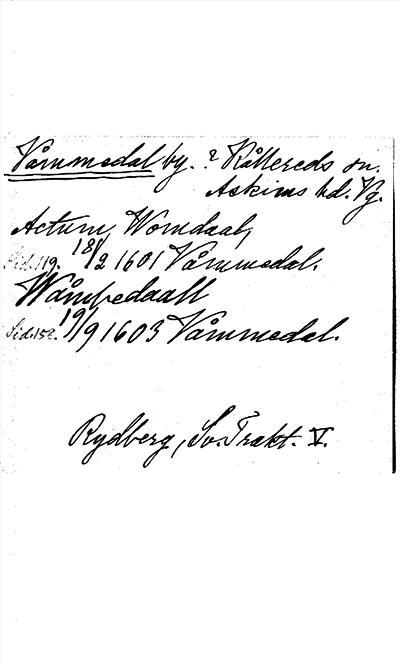 Vommedal by. ? Kållereds sn.
Askims hd. Vg.
Actum, Womdaal,
Sid. 119. 18/2 1601 Vommedal.
Wåmbedaall
Sid. 152. 19/9 1603 Vommedal.
Rydberg, Sv. Trakt. V.